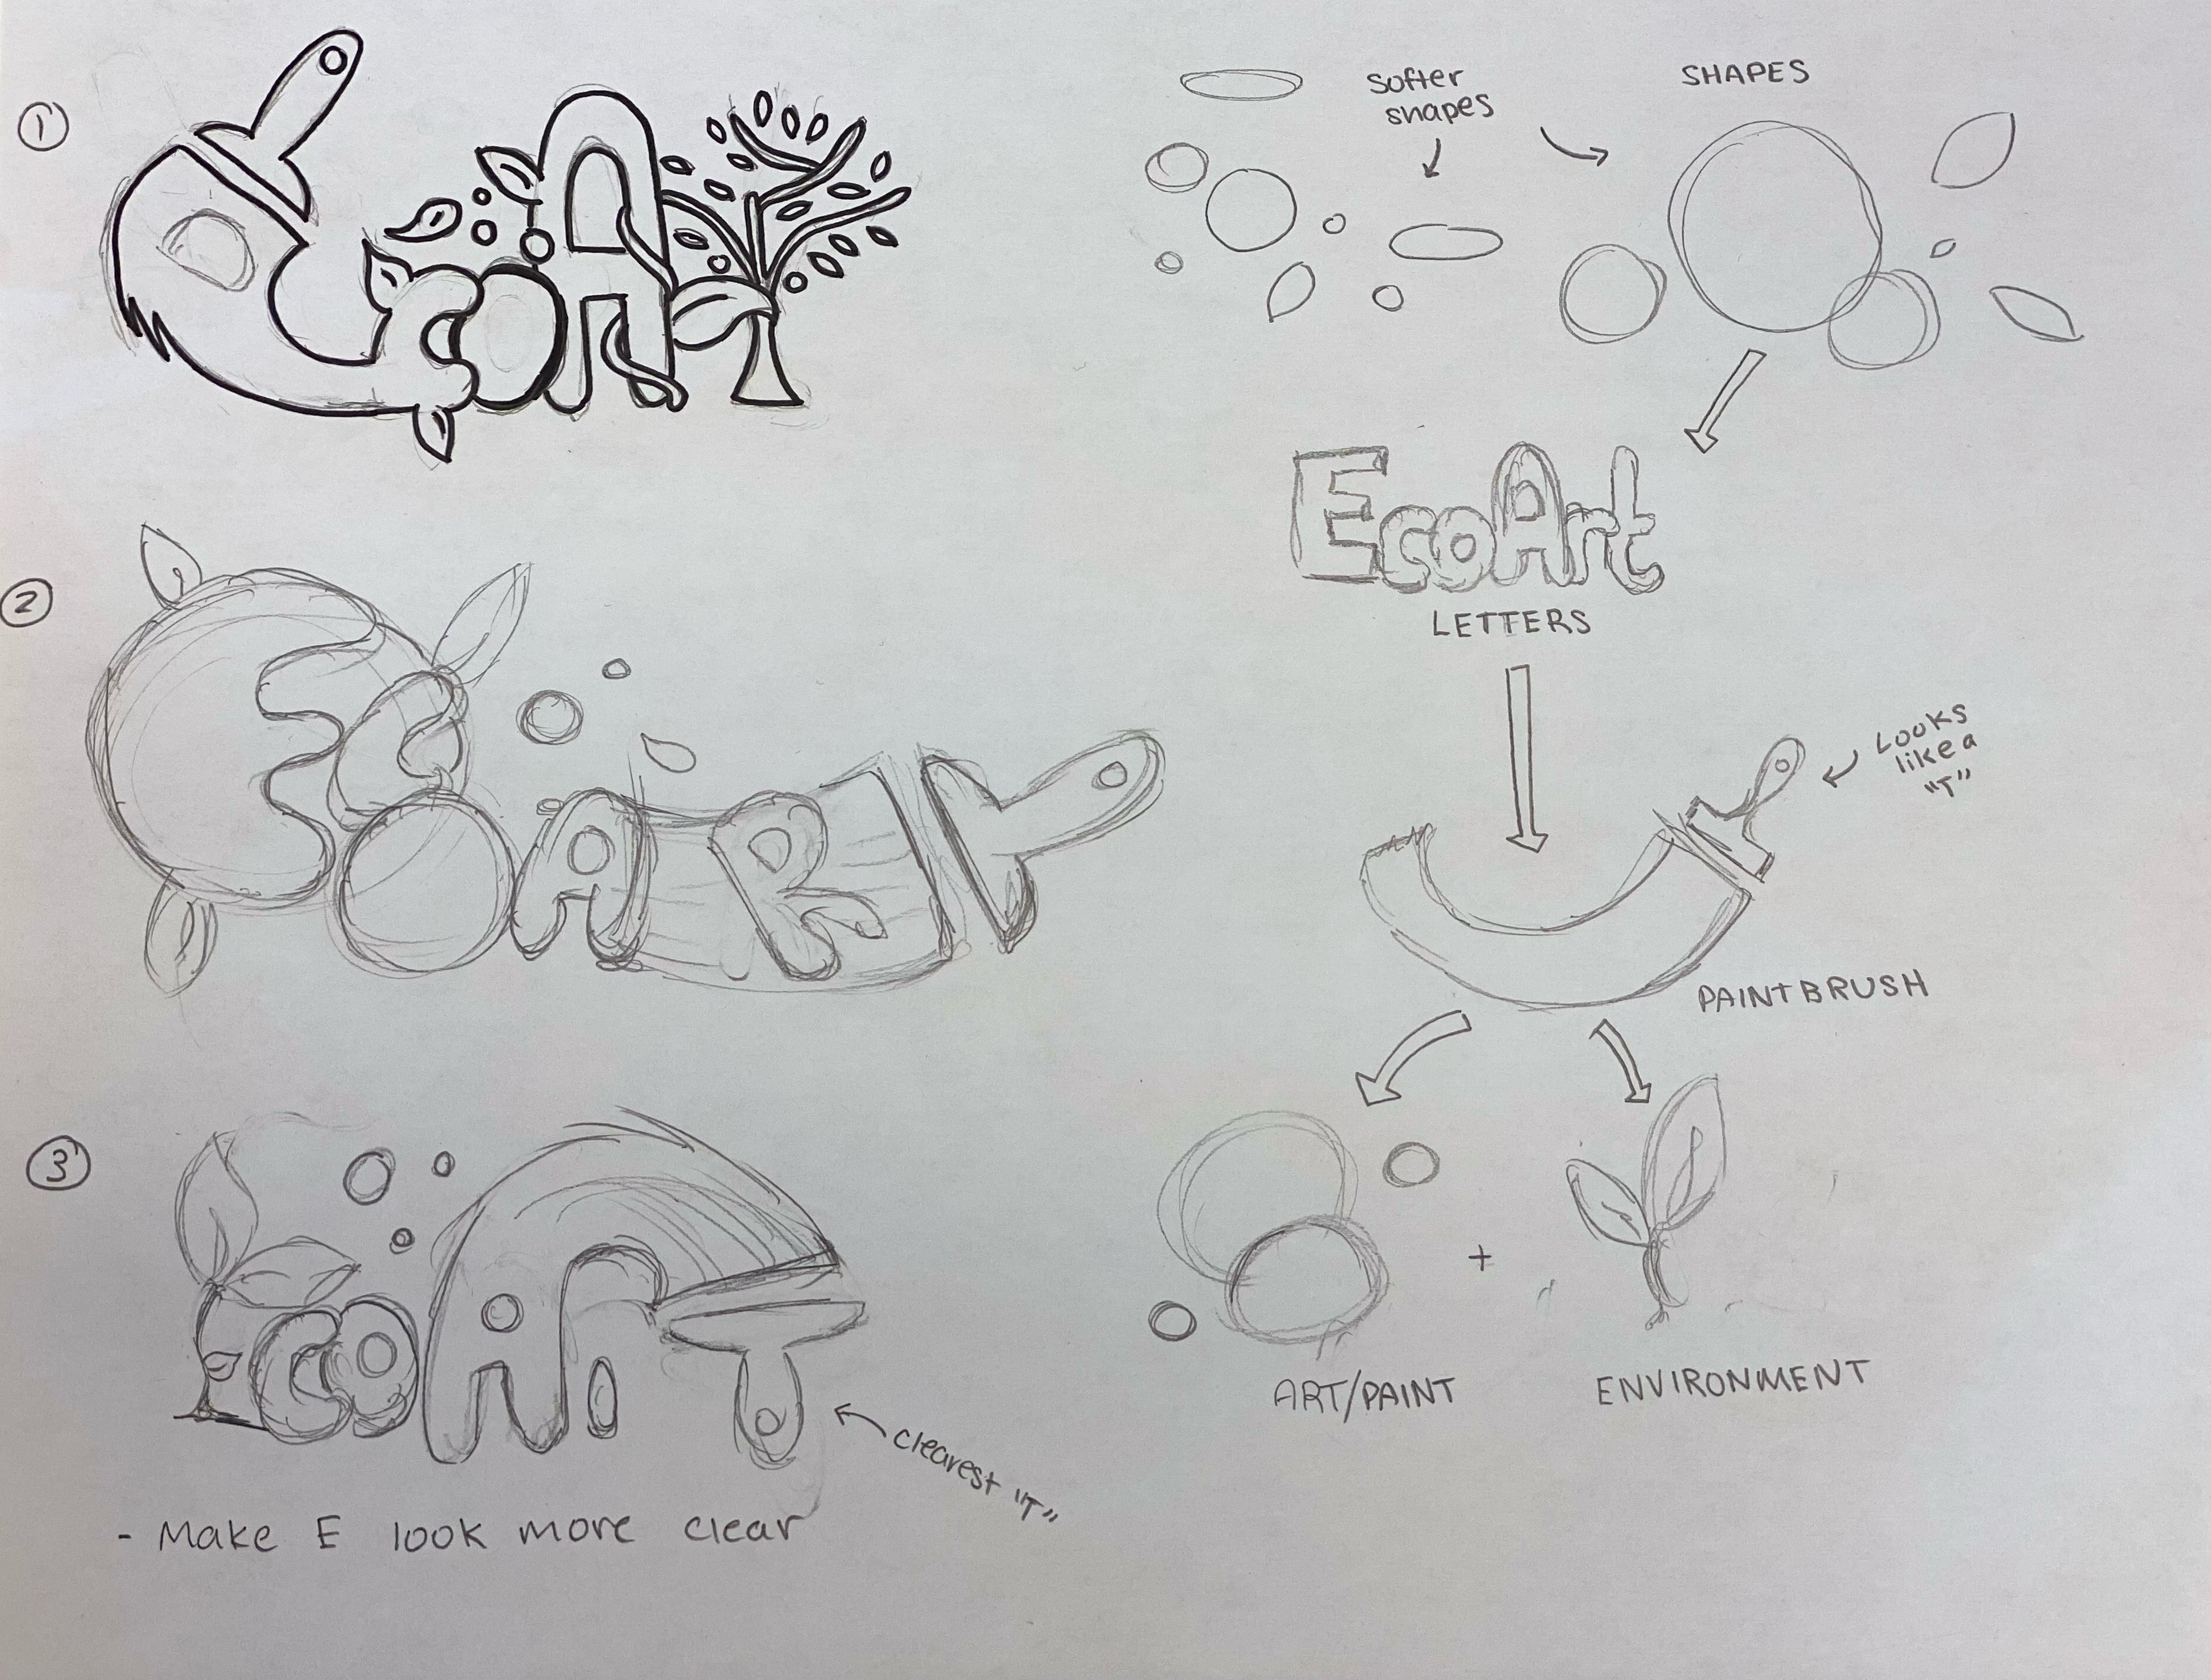 1
EcoArt
2
ECOART
3
EcoArT
clearest "T"
- Make E look more clear
softer
shapes
SHAPES
EcoArt
LETTERS
Looks
like a
"T"
PAINTBRUSH
+
ART/PAINT
ENVIRONMENT